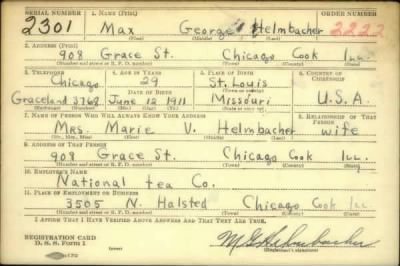 SERIAL NUMBER 1. NAME (Print) ORDER NUMBER
2301 Max George Helmbacher 2222
(First) (Middle) (Last)
2. ADDRESS (Print)
908 Grace St. Chicago Cook ILL.
(Number and street or R. F. D. number) (Town) (County) (State)
3. TELEPHONE 4. AGE IN YEARS 5. PLACE OF BIRTH 6. COUNTRY OF CITIZENSHIP
Chicago 29 St. Louis
DATE OF BIRTH
Graceland 3762 June 12 1911 Missouri U.S.A.
7. NAME OF PERSON WHO WILL ALWAYS KNOW YOUR ADDRESS 8. RELATIONSHIP OF THAT PERSON
Mrs. Marie V. Helmbacher wife
(Mr., Mrs., Miss) (First) (Middle) (Last)
9. ADDRESS OF THAT PERSON
908 Grace St. Chicago Cook ILL.
(Number and street or R. F. D. number) (Town) (County) (State)
10. EMPLOYER'S NAME
National tea Co.
11. PLACE OF EMPLOYMENT OR BUSINESS
3505 N. Halsted Chicago Cook ILL
(Number and street or R. F. D. number) (Town) (County) (State)
I AFFIRM THAT I HAVE VERIFIED ABOVE ANSWERS AND THAT THEY ARE TRUE.
REGISTRATION CARD
D. S. S. Form 1 M G Helmbacher
(Registrant's signature)